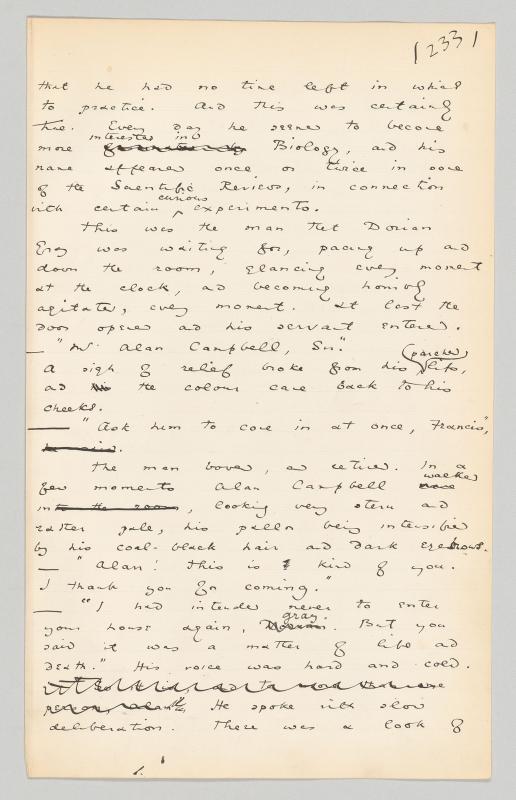 233
that he had no time left in which
to practice. And this was certainly
true. Every day he seemed to become
interested in
more Biology, and his
name appeared once or twice in some
of the Scientific Reviews, in connection
curious
with certain ^ experiments.
This was the man that Dorian
Gray was waiting for, pacing up and
down the room, glancing every moment
at the clock, and becoming horribly
agitated, every moment. At last the
door opened and his servant entered.
— "Mr Alan Campbell, Sir."
parched
A sigh of relief broke from his lips,
and the colour came back to his
cheeks.
— "Ask him to come in at once, Francis",
The man bowed, and retired. In a
walked
few moments Alan Campbell
in, looking very stern and
rather pale, his pallor being intensified
by his coal-black hair and dark eyebrows.
— "Alan! This is kind of you.
I thank you for coming."
— "I had intended never to enter
Gray.
your house again, But you
said it was a matter of life and
death." His voice was hard and cold.
He spoke with slow
deliberation. There was a look of